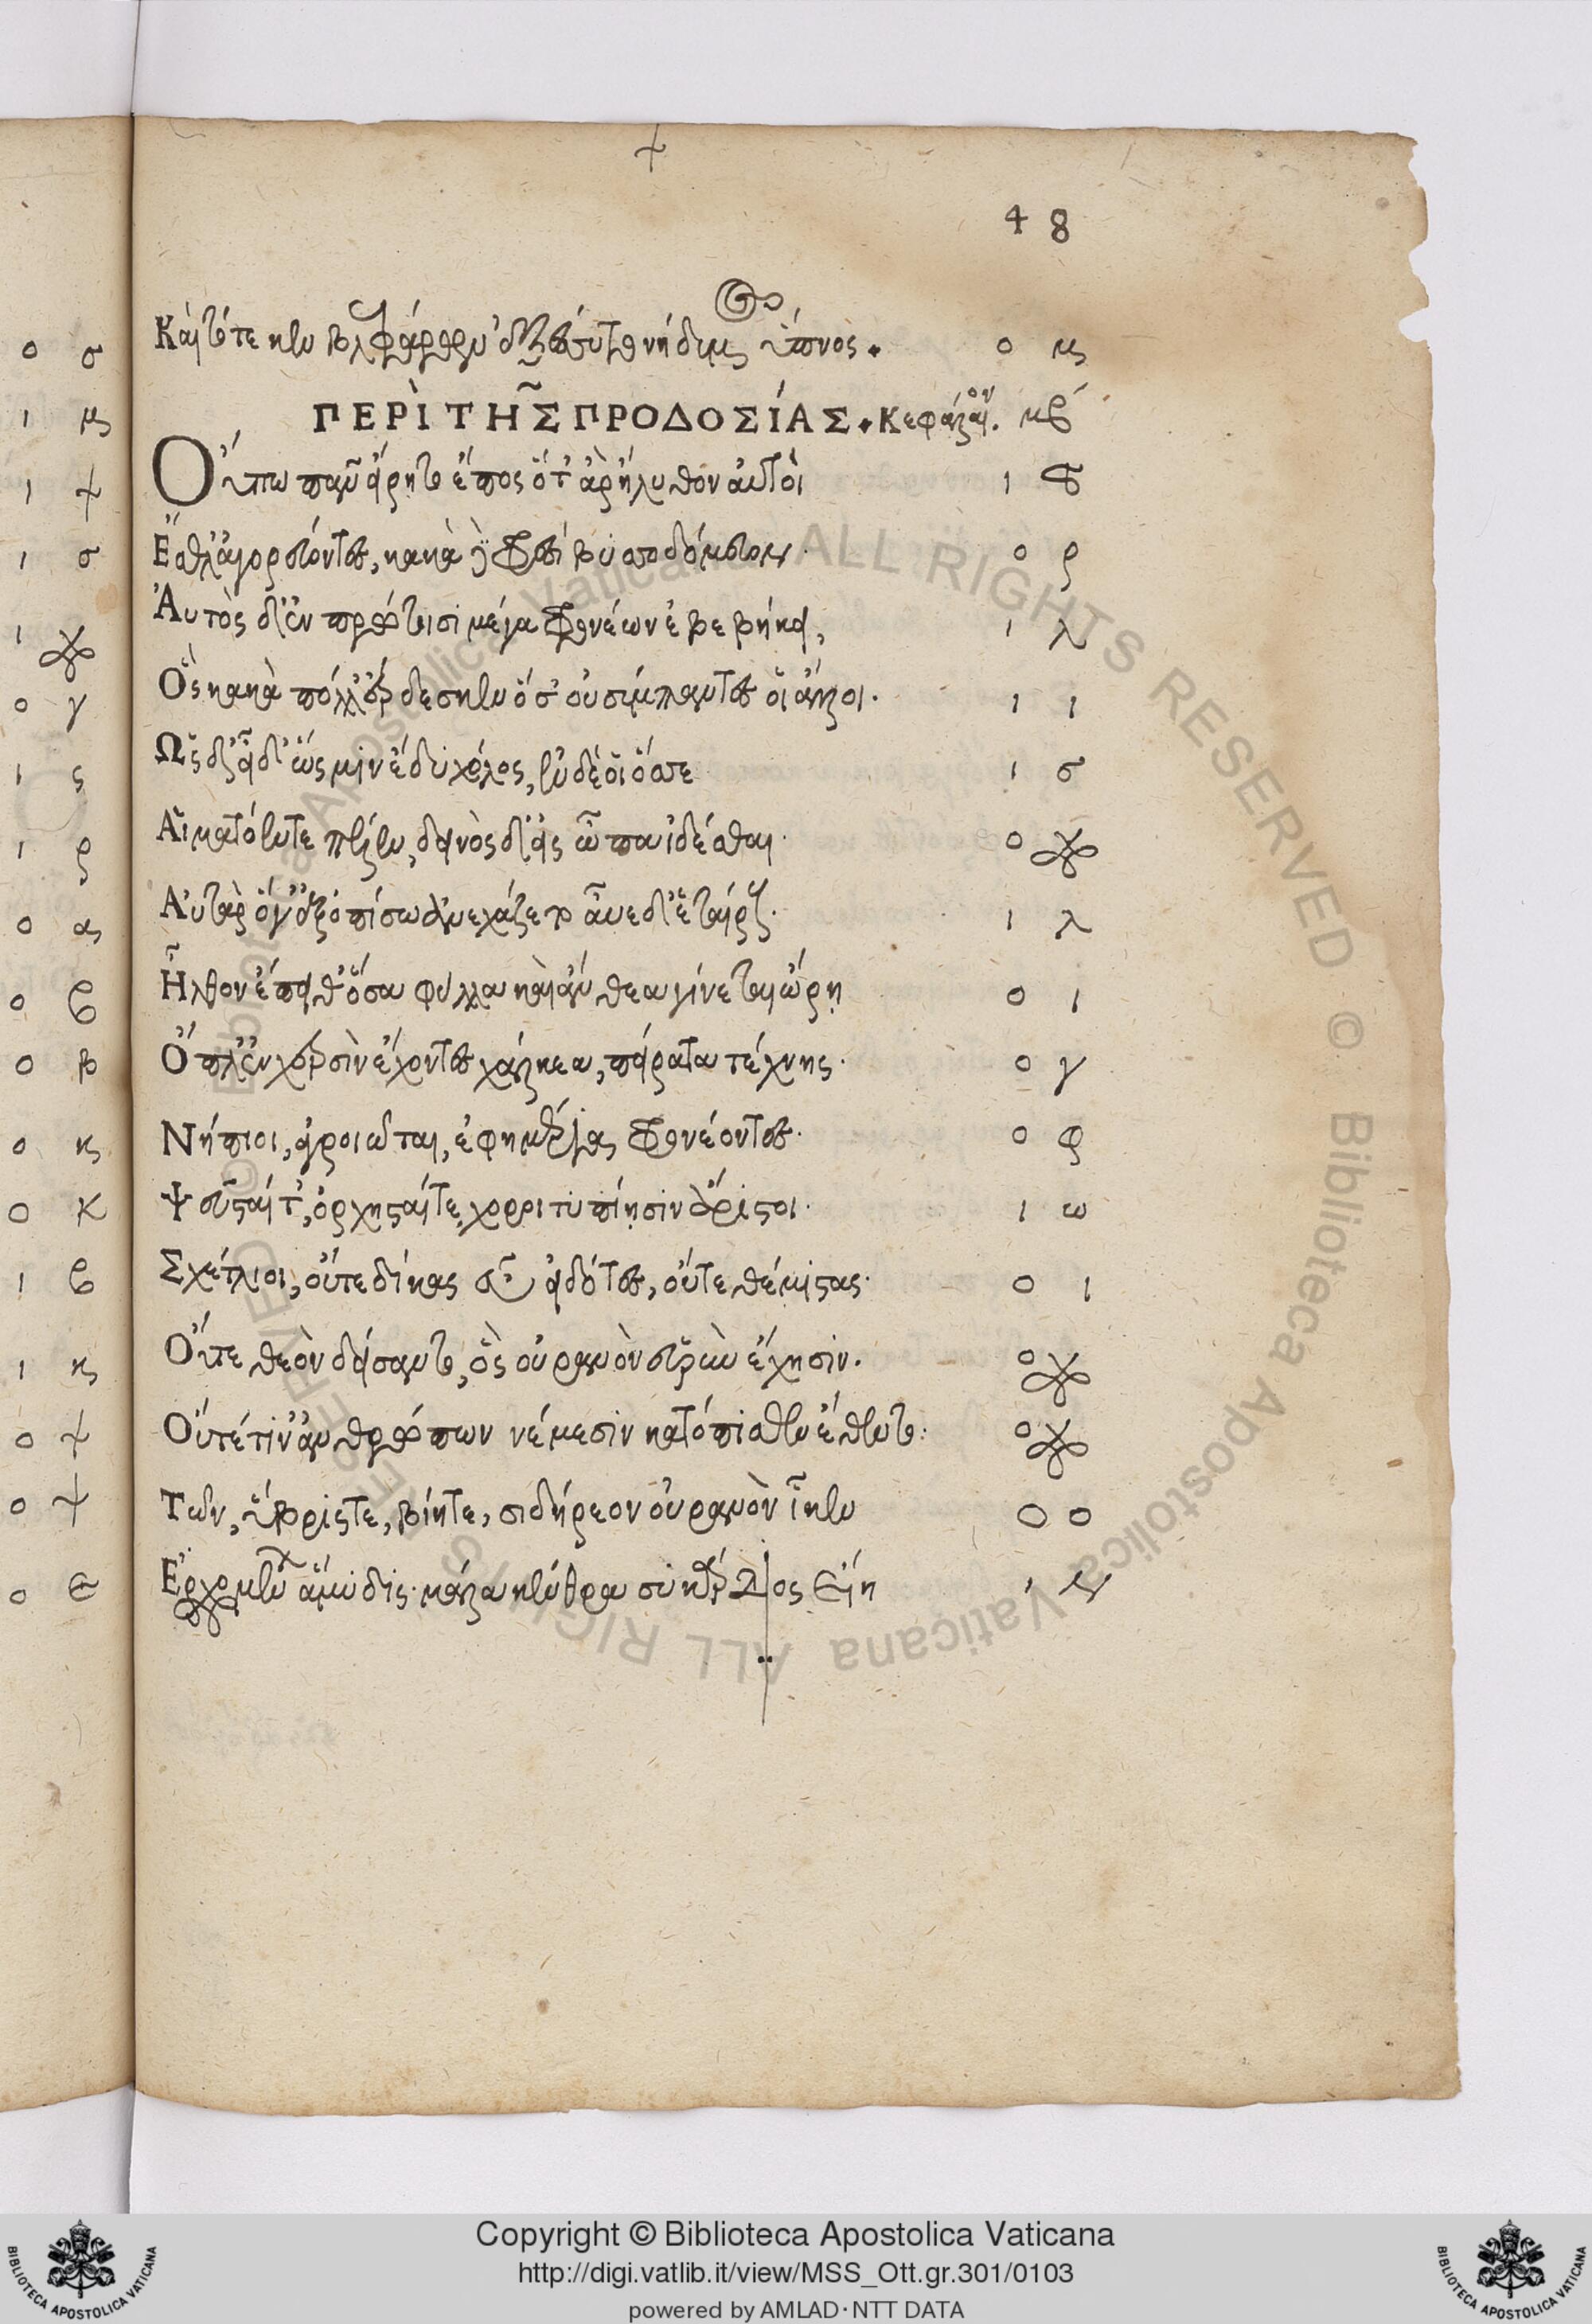 48
Καὶ τότε κὲν βλεφάρων ἐξέσσυτο νήδυμος ὕπνος.
ο κς
ΠΕΡῚ ΤΗ͂Σ ΠΡΟΔΟΣΊΑΣ. Κεφάλαιον. κβʹ
Οὔπω πᾶν εἴρητο ἔπος ὅτ' ἄρ' ἤλυθον αὐτοὶ
Ἐσθλ' ἀγορεύοντες, κακὰ δὲ φρεσὶ βυσσοδόμευον.
ο ρ
Αὐτὸς δ' ἐν πρώτοισι μέγα φρονέων ἐβεβήκει,
ι λ
Ὃς κακὰ πόλλ' ἔρδεσκεν ὅσ' οὐ σύμπαντες οἱ ἄλλοι.
ι ι
Ὣς δ' εἶδ' ὥς μιν ἔδυ χόλος, ἐν δέ οἱ ὄσσε
ι σ
Αἱματόεντε πέλεν, δεινὸς δ' εἰς ὦπα ἰδέσθαι.
Αὐτὰρ ὅγ' ἐξοπίσω ἀνεχάζετο αὖε δ' ἑταίρους.
ι λ
Ἦλθον ἔπειθ' ὅσα φύλλα καὶ ἄνθεα γίνεται ὥρῃ
ο ι
Ὅπλ' ἐν χερσὶν ἔχοντες χάλκεα, πείρατα τέχνης.
ο γ
Νήπιοι, ἀγροιῶται, ἐφημέρια φρονέοντες.
ο φ
Ψεῦσταί τ', ὀρχησταί τε, χοροιτυπίῃσιν ἄριστοι.
ι ω
Σχέτλιοι, οὔτε δίκας εὖ εἰδότες, οὔτε θέμιστας.
ο ι
Οὔτε θεὸν δείσαντο, ὃς οὐρανὸν εὐρὺν ἔχησιν.
Οὔτέ τιν' ἀνθρώπων νέμεσιν κατόπισθεν ἔθεντο.
Τῶν, ὕβρις τε, βίη τε, σιδήρεον οὐρανὸν ἷκεν
ο ο
Ἐρχομένων ἄμυδις. μάλα κεν θρασυκάρδιος εἴη
Copyright © Biblioteca Apostolica Vaticana
http://digi.vatlib.it/view/MSS_Ott.gr.301/0103
powered by AMLAD·NTT DATA